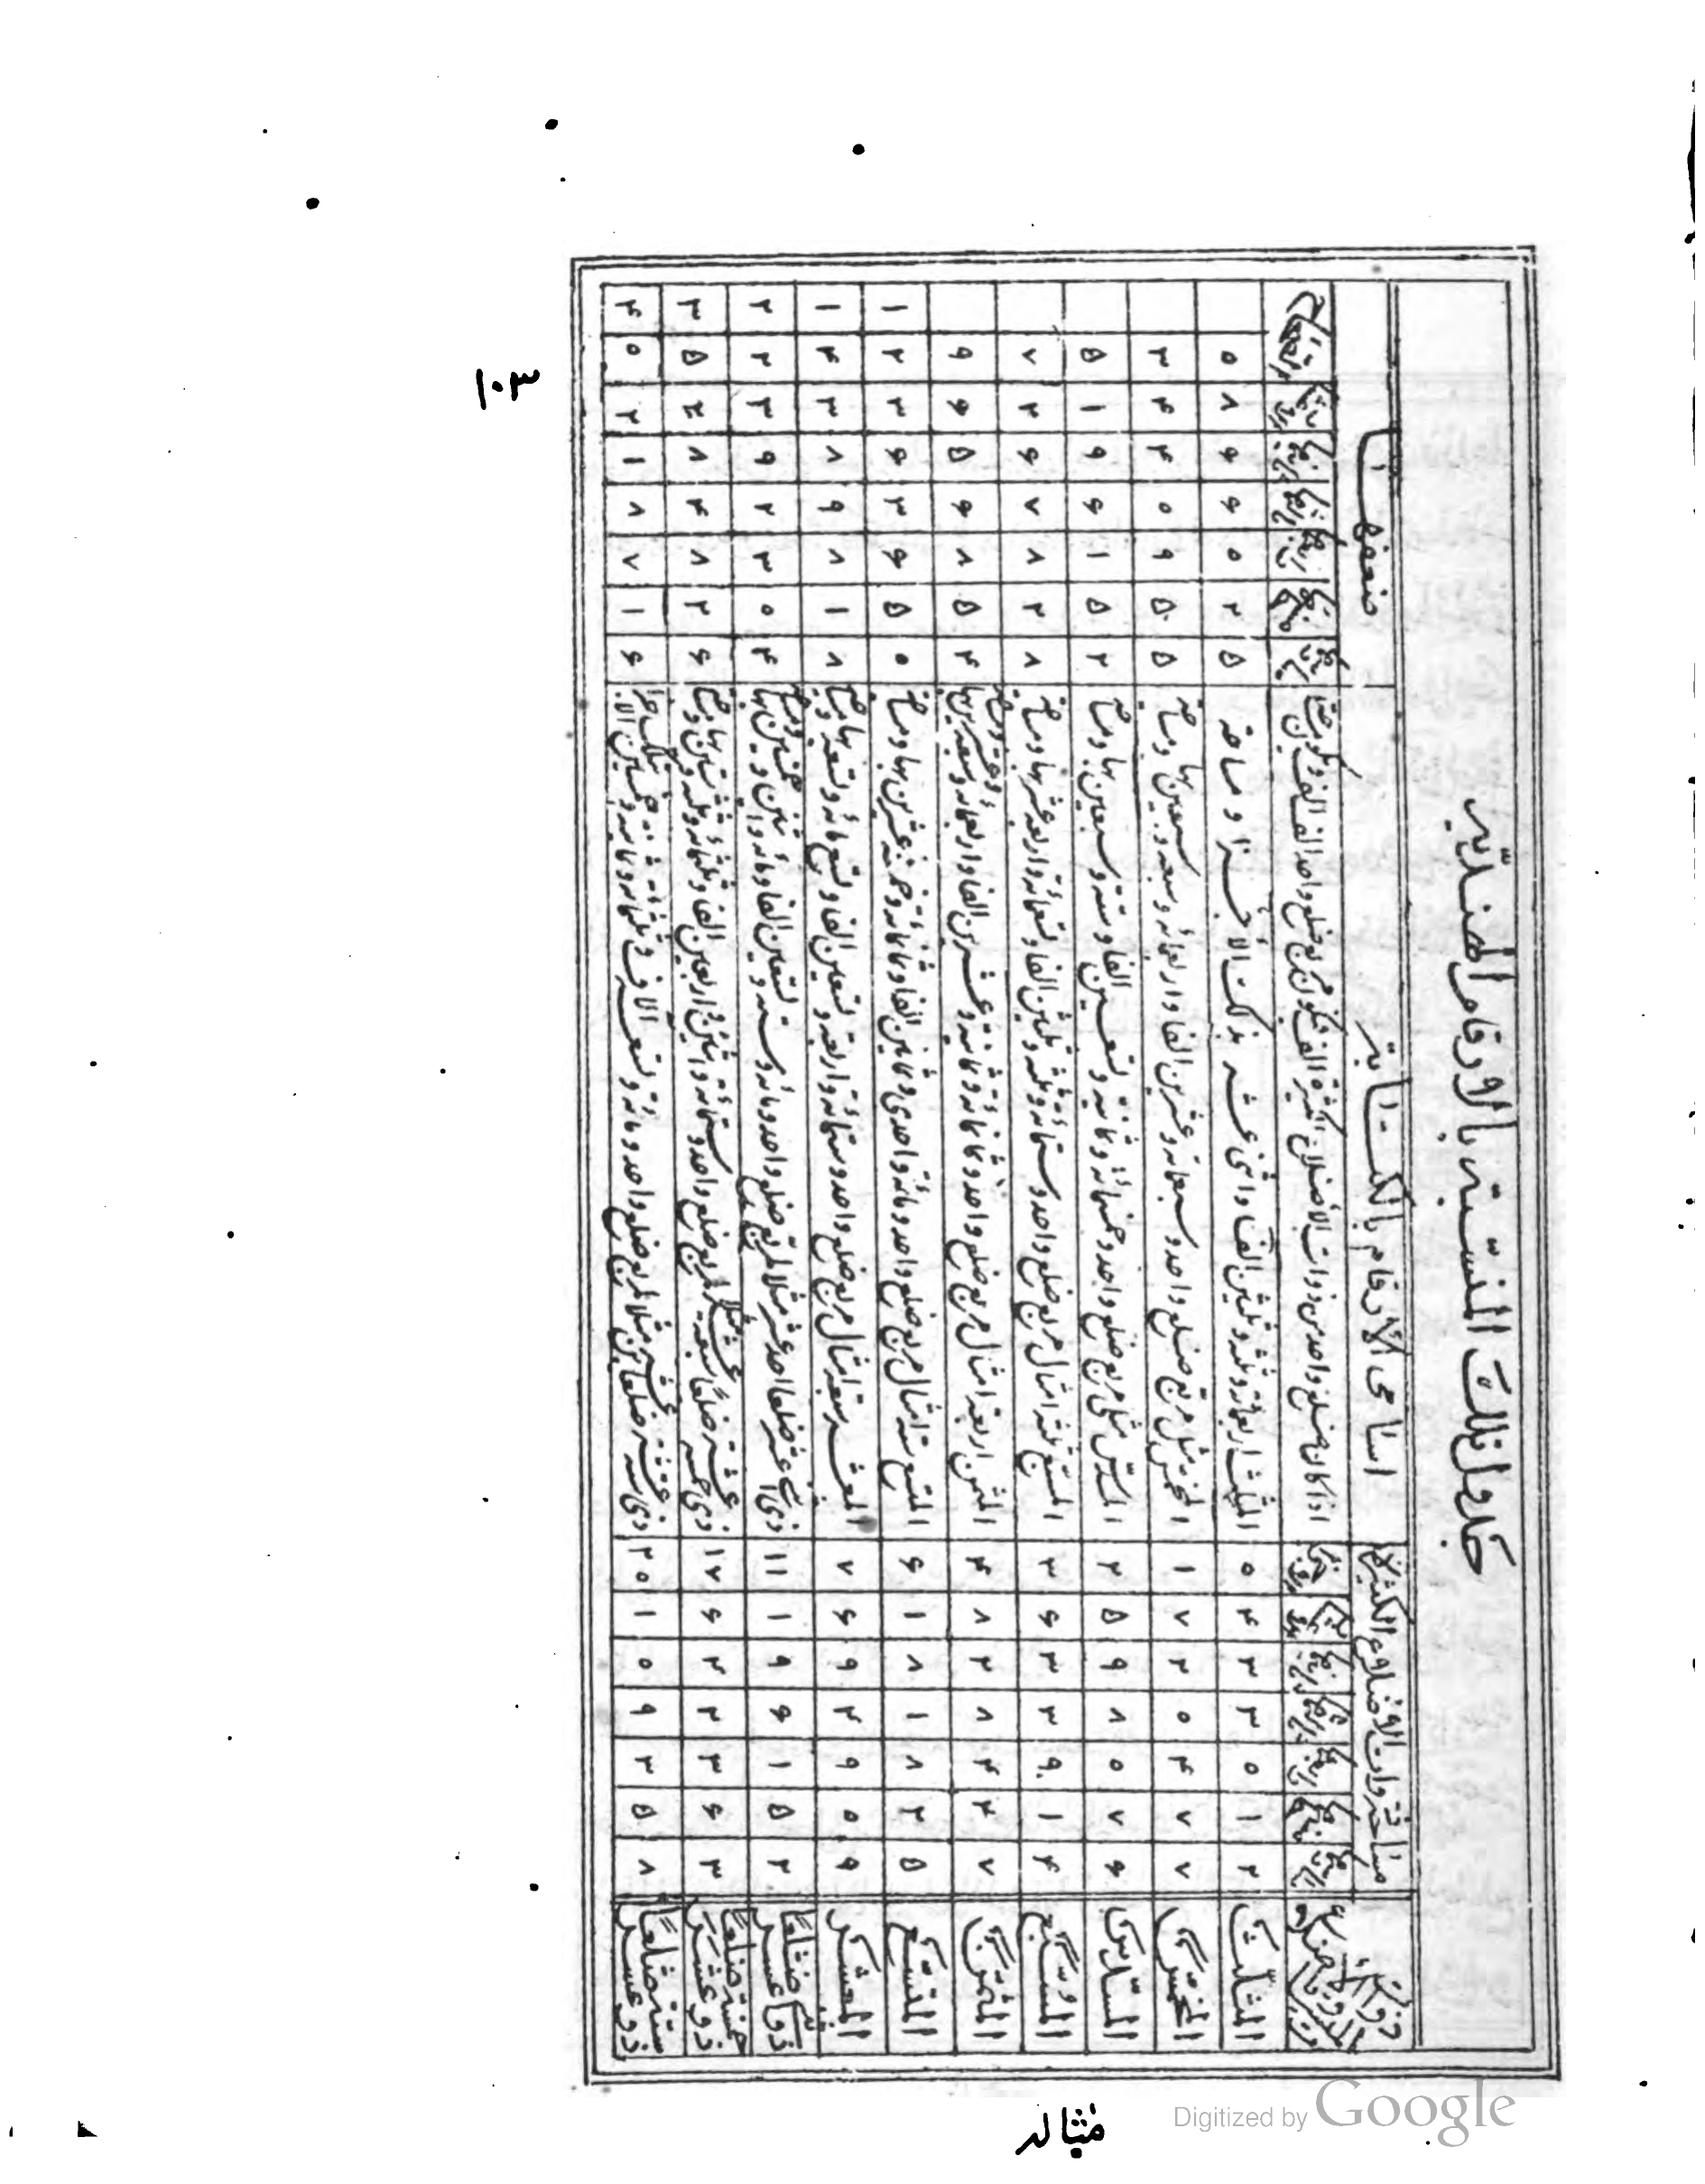 ١٠٣
جدول تلك النسبة بالأرقام الهندية
مساحة ذوات الاضلاع الكثيرة
اسامي الأرقام بالكتابة
ضعفها
المثلث ٠ ۴ ٣ ٣ ٠ ١ ٢ المثلث اربعمائة وثلثة وثلثين الفا واثني عشر بذلك الأجزا ومساحة ٠ ٨ ۶ ۶ ٠ ٢ ۵
المخمس ١ ٧ ٢ ٠ ۴ ٧ ٧ المخمس مثل مربع ضلع واحد وسبعمائة وعشرين الفا واربعمائة وسبعة وسبعين بها ومساحة ٣ ۴ ۴ ٠ ٩ ۵ ۵
المسدس ٢ ۵ ٩ ٨ ٠ ٧ ۶ المسدس مثلي مربع ضلع واحد وخمسمائة وثمانية وتسعين الفا وستة وسبعين بها ومساحة ۵ ١ ٩ ۶ ١ ۵ ٢
المسبع ٣ ۶ ٣ ٣ ٩ ١ ۴ المسبع ثلثة امثال مربع ضلع واحد وستمائة وثلثة وثلثين الفا وتسعمائة واربعة عشر بها ومساحة ٧ ٢ ۶ ٧ ٨ ٢ ٨
المثمن ۴ ٨ ٢ ٨ ۴ ٢ ٧ المثمن اربعة امثال مربع ضلع واحد وثمانمائة وثمانية وعشرين الفا واربعمائة وسبعة وعشرين بها ومساحة ٩ ۶ ۵ ۶ ٨ ۵ ۴
المتسع ۶ ١ ٨ ١ ٨ ٢ ۵ المتسع ستة امثال مربع ضلع واحد ومائة واحدى وثمانين الفا وثمانمائة وخمسة وعشرين بها ومساحة ١ ٢ ٣ ۶ ٣ ۶ ۵ ٠
المعشر ٧ ۶ ٩ ۴ ٩ ٠ ٩ المعشر سبعة امثال مربع ضلع واحد وستمائة واربعة وتسعين الفا وتسعمائة وتسعة بها ومساحة ١ ۴ ٣ ٨ ٩ ٨ ١ ٨
ذو اثني عشر ضلعا ١١ ١ ٩ ۶ ١ ۵ ٢ ذي اثني عشر ضلعا احد عشر مثلا لمربع ضلع واحد ومائة وستة وتسعين الفا ومائة واثنين وخمسين بها ومساحة ٢ ٢ ٣ ٩ ٢ ٣ ٠ ۴
ذو خمسة عشر ضلعا ١٧ ۶ ۴ ٢ ٣ ۶ ٣ ذي خمسة عشر ضلعا سبعة عشر مثلا لمربع ضلع واحد وستمائة واثنين واربعين الفا وثلثمائة وثلثة وستين بها ومساحة ٣ ۵ ٢ ٨ ۴ ٨ ٢ ۶
ذو ستة عشر ضلعا ٢٠ ١ ٠ ٩ ٣ ۵ ٨ ذي ستة عشر ضلعا عشرين مثلا لمربع ضلع واحد ومائة وتسعة الاف وثلثمائة وثمانية وخمسين ۴ ٠ ٢ ١ ٨ ٧ ١ ۶
مثاله
Digitized by Google